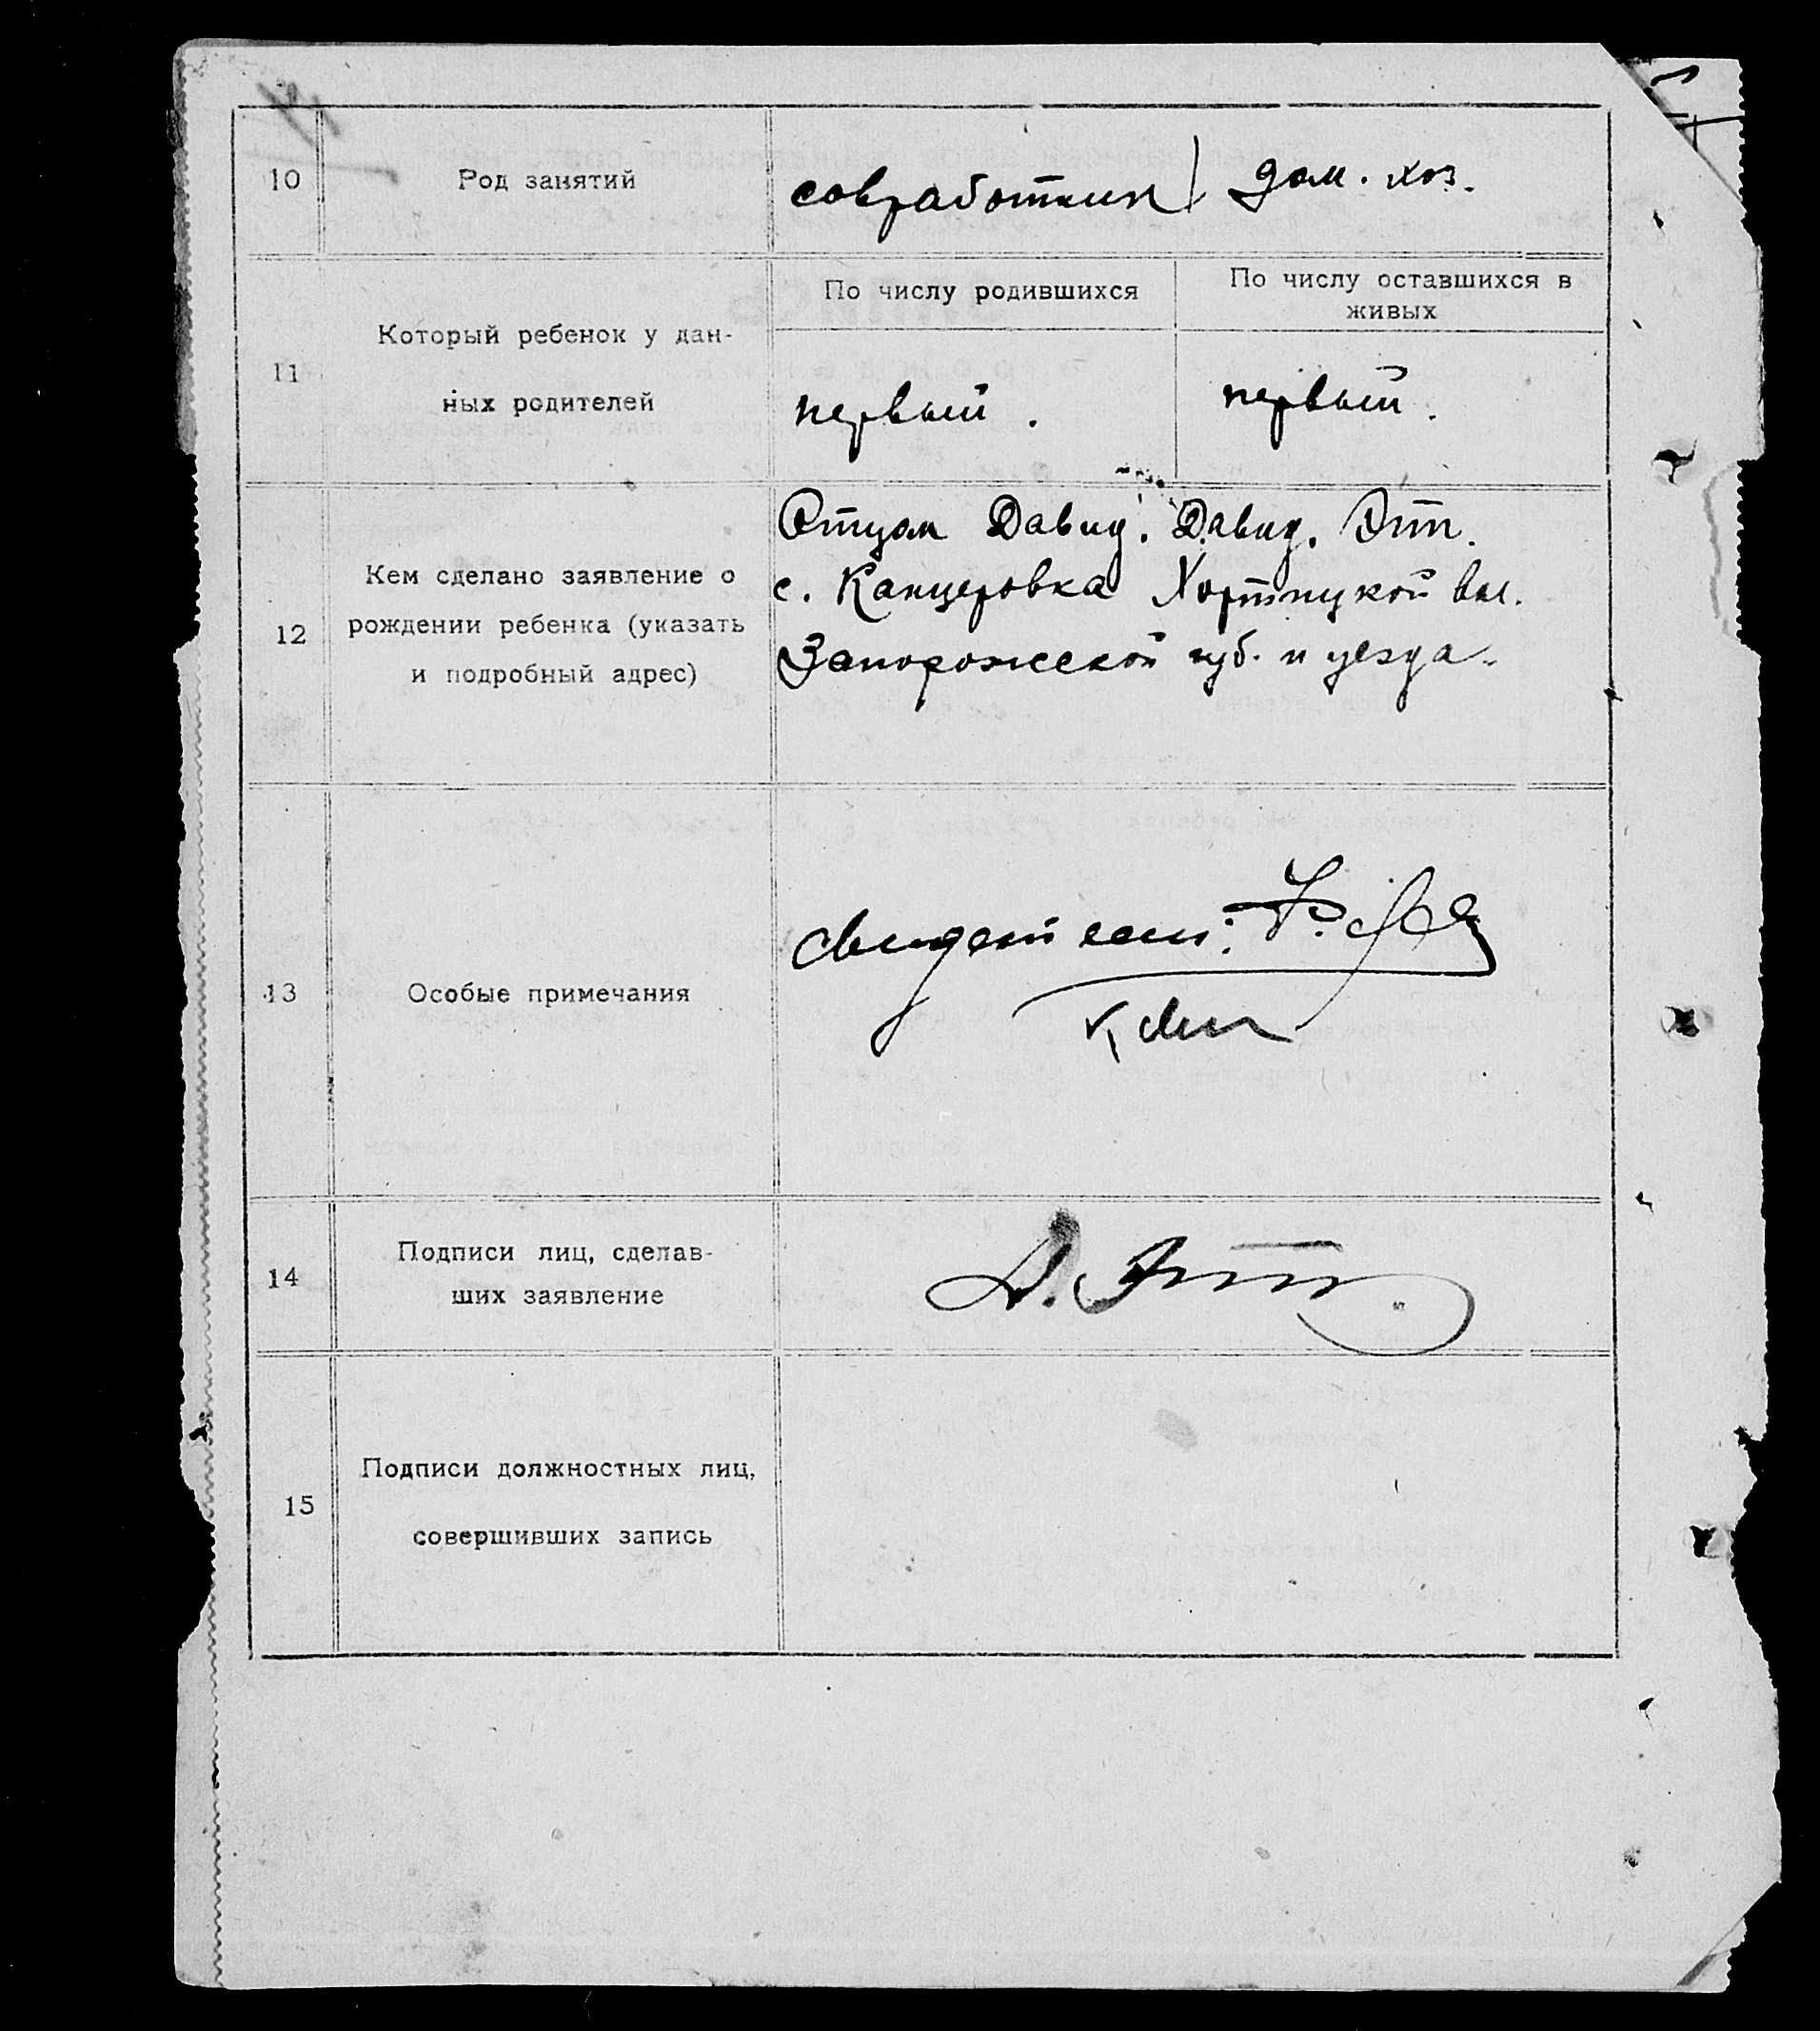 10 Род занятий совработник / дом. хоз.
По числу родившихся По числу оставшихся в
живых
11 Который ребенок у дан-
ных родителей
первый. первый.
12 Кем сделано заявление о
рождении ребенка (указать
и подробный адрес)
Отцом Давид. Давид. Этт.
с. Канцеровка Хортицкой вол.
Запорожской губ. и уезда.
13 Особые примечания
Свидетели:
14 Подписи лиц, сделав-
ших заявление
Д. Этт
15 Подписи должностных лиц,
совершивших запись